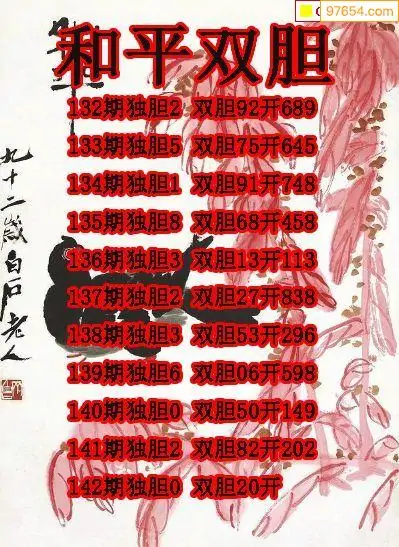 97654.com
和平双胆
132期独胆2 双胆92开689
133期独胆5 双胆75开645
134期独胆1 双胆91开748
135期独胆8 双胆68开458
136期独胆3 双胆13开113
137期独胆2 双胆27开838
138期独胆3 双胆53开296
139期独胆6 双胆06开598
140期独胆0 双胆50开149
141期独胆2 双胆82开202
142期独胆0 双胆20开
九十二岁白石老人